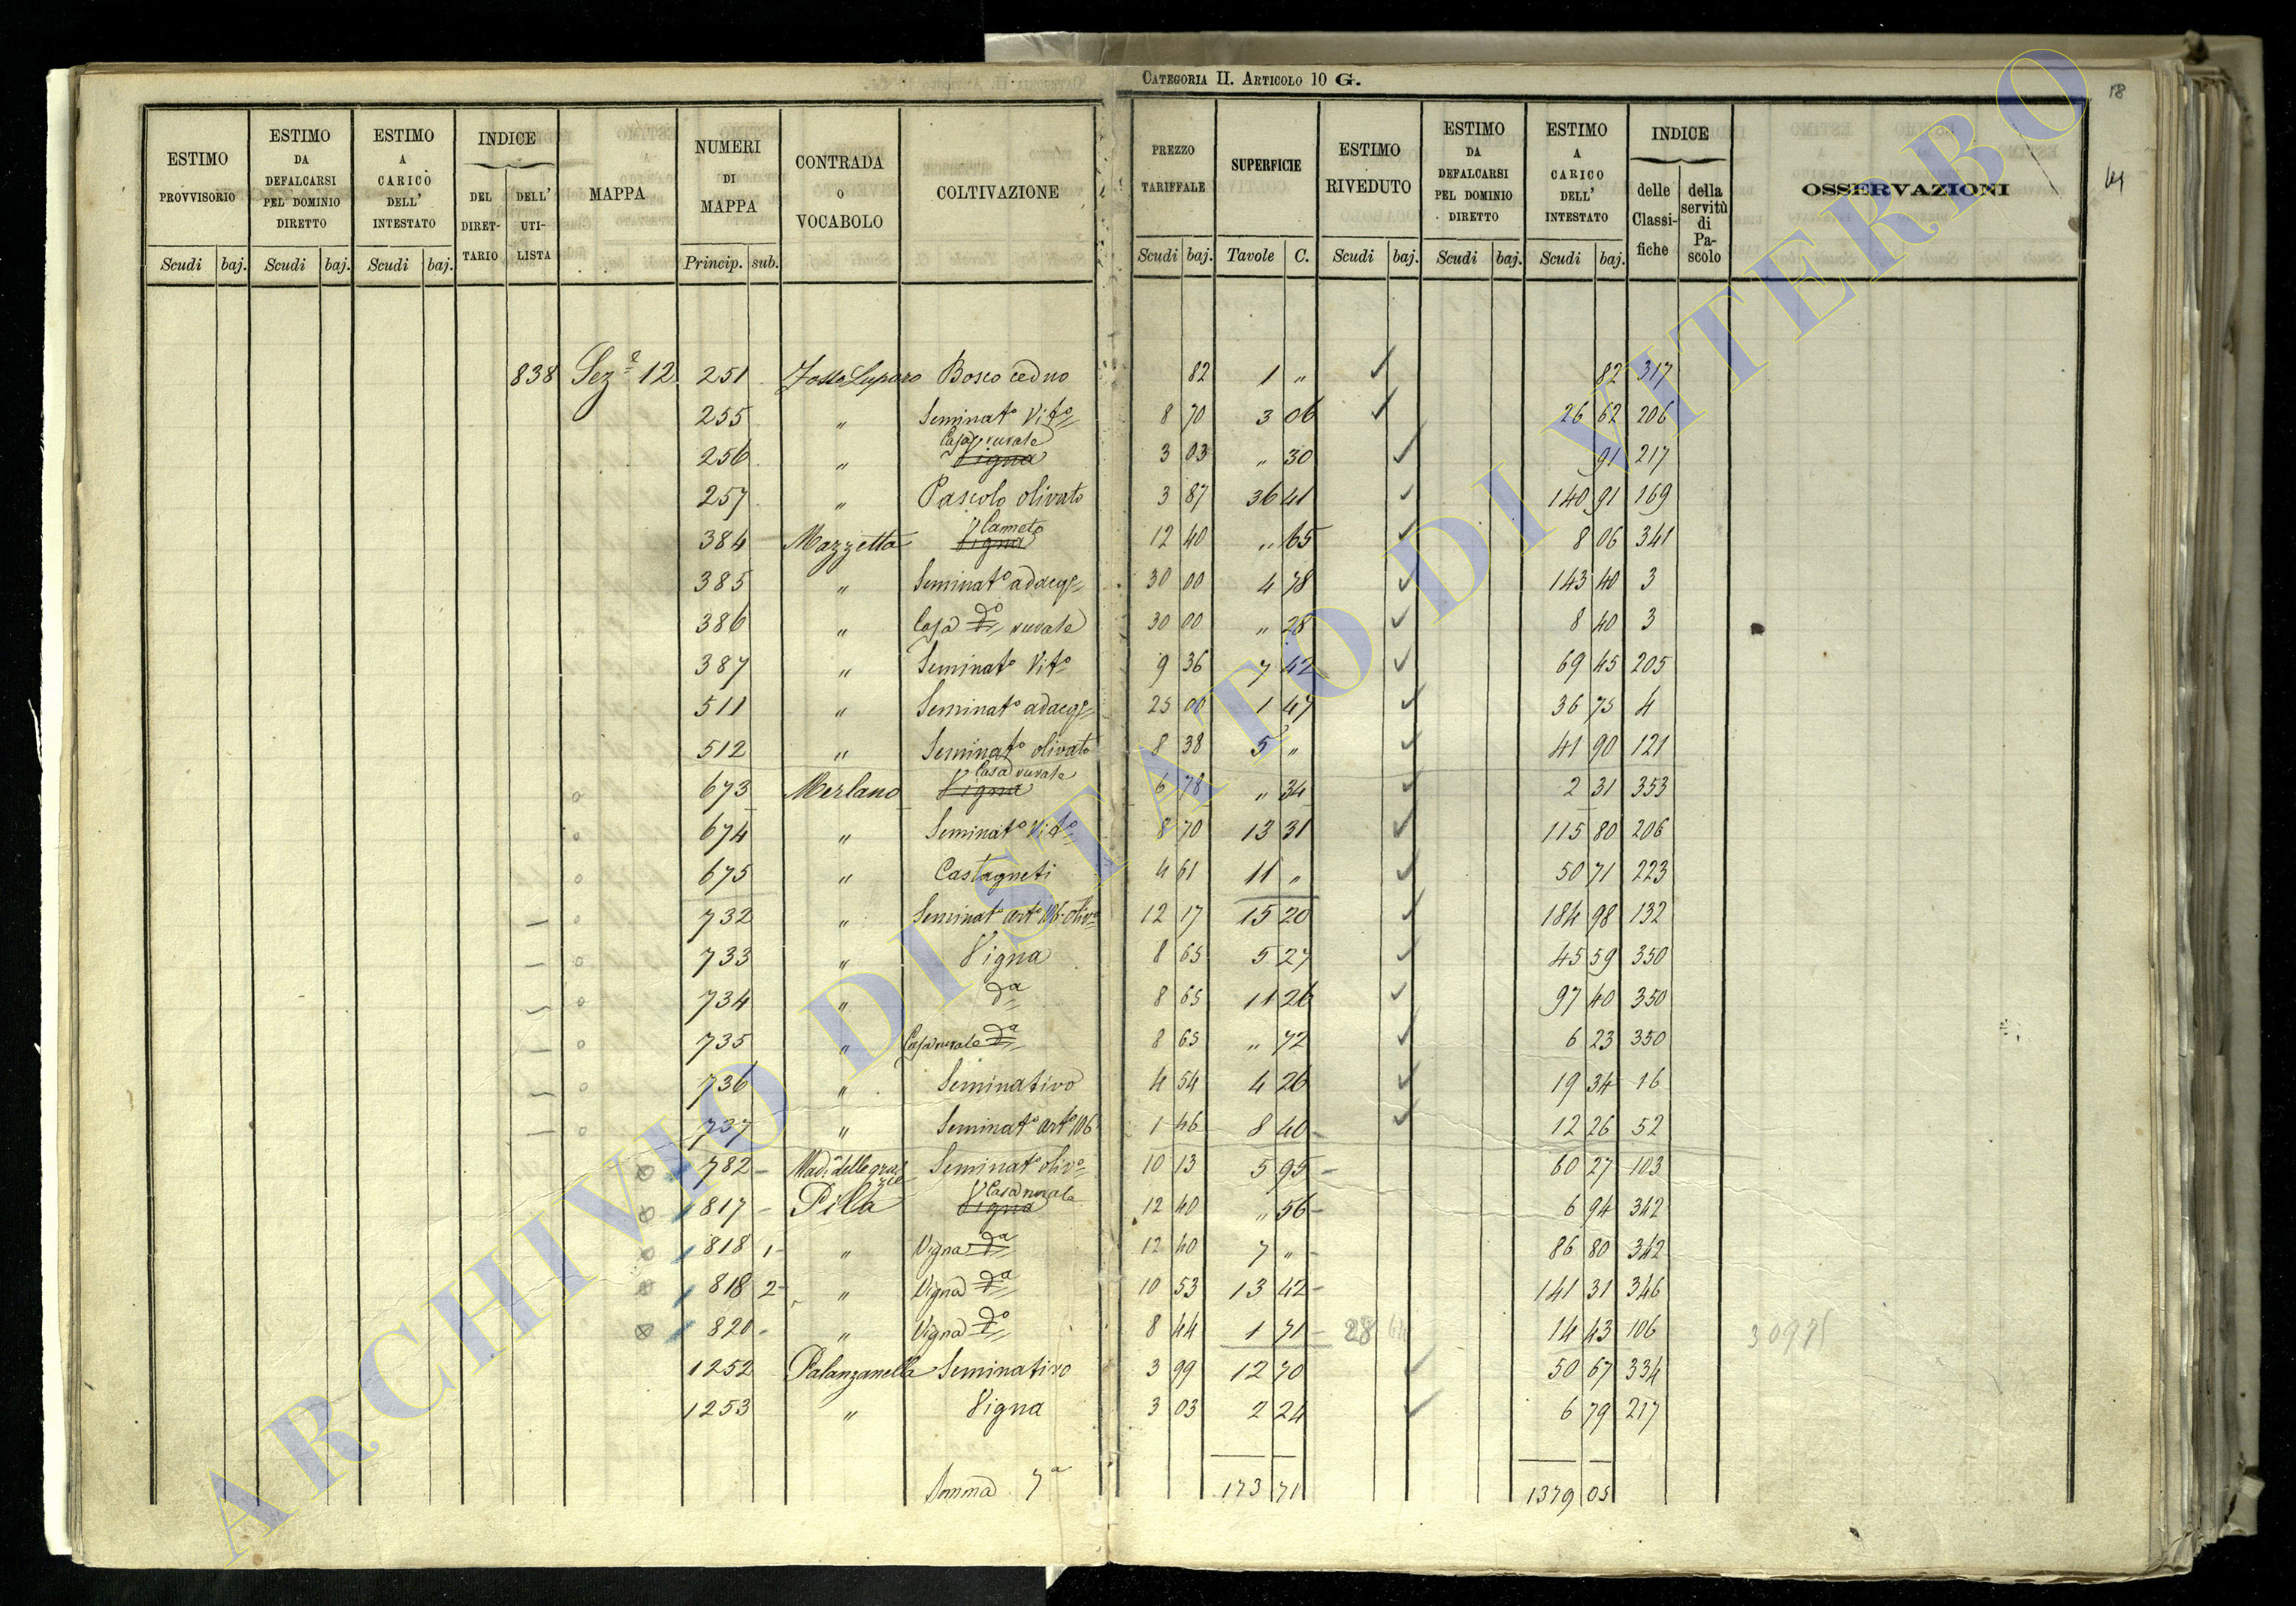 CATEGORIA II. ARTICOLO 10 G.
18
ESTIMO PROVVISORIO | ESTIMO DA DEFALCARSI PEL DOMINIO DIRETTO | ESTIMO A CARICO DELL' INTESTATO | INDICE DEL DIRETTARIO | DELL' UTILISTA | MAPPA | NUMERI DI MAPPA | CONTRADA O VOCABOLO | COLTIVAZIONE | PREZZO TARIFFALE | SUPERFICIE | ESTIMO RIVEDUTO | ESTIMO DA DEFALCARSI PEL DOMINIO DIRETTO | ESTIMO A CARICO DELL' INTESTATO | INDICE delle Classifiche | della servitù di Pascolo | OSSERVAZIONI
Scudi baj. Scudi baj. Scudi baj. Princip. sub. Scudi baj. Tavole C. Scudi baj. Scudi baj. Scudi baj.
838 Sez.e 12 251 Fosso Luparo Bosco ceduo 82 1 " ✓ 82 317
255 " Seminat.o Vit.o 8 70 3 06 ✓ 26 62 206
256 " Casa rurale Vigna 3 03 " 30 ✓ 91 217
257 " Pascolo olivato 3 87 36 41 ✓ 140 91 169
384 Mazzetta Vigna 12 40 " 65 ✓ 8 06 341
385 " Seminat.o adacq. 30 00 4 78 ✓ 143 40 3
386 " Casa d.o rurale 30 00 " 28 ✓ 8 40 3
387 " Seminat.o Vit.o 9 36 7 42 ✓ 69 45 205
511 " Seminat.o adacq. 25 00 1 47 ✓ 36 75 4
512 " Seminat.o olivato 8 38 5 " ✓ 41 90 121
673 Merlano Casa rurale Vigna 6 78 " 34 ✓ 2 31 353
674 " Seminat.o Vit.o 8 70 13 31 ✓ 115 80 206
675 " Castagneti 4 61 11 " ✓ 50 71 223
732 " Seminat. art.o 106 oliv.o 12 17 15 20 ✓ 184 98 132
733 " Vigna 8 65 5 27 ✓ 45 59 350
734 " d.a 8 65 11 26 ✓ 97 40 350
735 " Casa rurale d.a 8 65 " 72 ✓ 6 23 350
736 " Seminativo 4 54 4 26 ✓ 19 34 16
737 " Seminat.o art.o 106 1 46 8 40 ✓ 12 26 52
782 Mad. delle grazie Seminat.o oliv.o 10 13 5 95 60 27 103
817 Pila Casa rurale Vigna 12 40 " 56 6 94 342
818 1 " Vigna d.a 12 40 7 " 86 80 342
818 2 " Vigna d.a 10 53 13 42 141 31 346
820 " Vigna d.o 8 44 1 71 28 14 43 106
1252 Palanzanella Seminativo 3 99 12 70 ✓ 50 67 334
1253 " Vigna 3 03 2 24 ✓ 6 79 217
Somma 7a 173 71 1379 05
ARCHIVIO DI STATO DI VITERBO